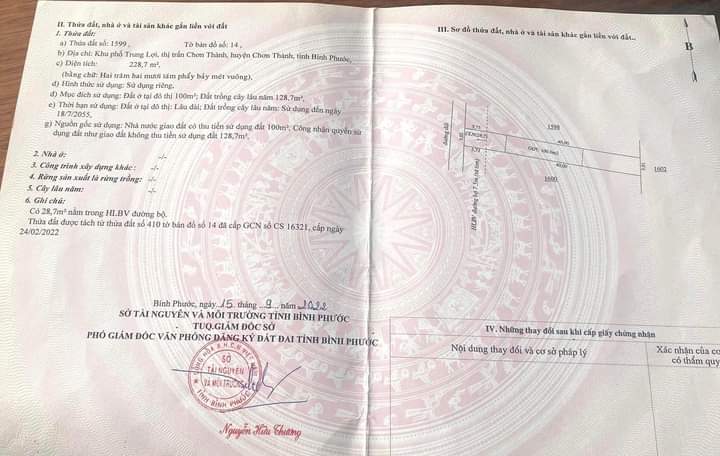 II. Thửa đất, nhà ở và tài sản khác gắn liền với đất
1. Thửa đất:
a) Thửa đất số: 1599 , Tờ bản đồ số: 14 ,
b) Địa chỉ: Khu phố Trung Lợi, thị trấn Chơn Thành, huyện Chơn Thành, tỉnh Bình Phước,
c) Diện tích: 228,7 m²,
(bằng chữ: Hai trăm hai mươi tám phẩy bảy mét vuông),
d) Hình thức sử dụng: Sử dụng riêng,
đ) Mục đích sử dụng: Đất ở tại đô thị 100m²; Đất trồng cây lâu năm 128,7m²,
e) Thời hạn sử dụng: Đất ở tại đô thị: Lâu dài; Đất trồng cây lâu năm: Sử dụng đến ngày
18/7/2055,
g) Nguồn gốc sử dụng: Nhà nước giao đất có thu tiền sử dụng đất 100m², Công nhận quyền sử
dụng đất như giao đất không thu tiền sử dụng đất 128,7m².
2. Nhà ở: -/-
3. Công trình xây dựng khác: -/-
4. Rừng sản xuất là rừng trồng: -/-
5. Cây lâu năm: -/-
6. Ghi chú:
Có 28,7m² nằm trong HLBV đường bộ.
Thửa đất được tách từ thửa đất số 410 tờ bản đồ số 14 đã cấp GCN số CS 16321, cấp ngày
24/02/2022
Bình Phước, ngày 15 tháng 9 năm 2022
SỞ TÀI NGUYÊN VÀ MÔI TRƯỜNG TỈNH BÌNH PHƯỚC
TUQ.GIÁM ĐỐC SỞ
PHÓ GIÁM ĐỐC VĂN PHÒNG ĐĂNG KÝ ĐẤT ĐAI TỈNH BÌNH PHƯỚC
SỞ
TÀI NGUYÊN
VÀ MÔI TRƯỜNG
TỈNH BÌNH PHƯỚC
Nguyễn Hữu Thường
III. Sơ đồ thửa đất, nhà ở và tài sản khác gắn liền với đất..
B
1598
đường đất
5,73
40,00
5,73
40,00
1600
1602
HLBV đường bộ 7,5m
IV. Những thay đổi sau khi cấp giấy chứng nhận
Nội dung thay đổi và cơ sở pháp lý
Xác nhận của cơ
có thẩm quy